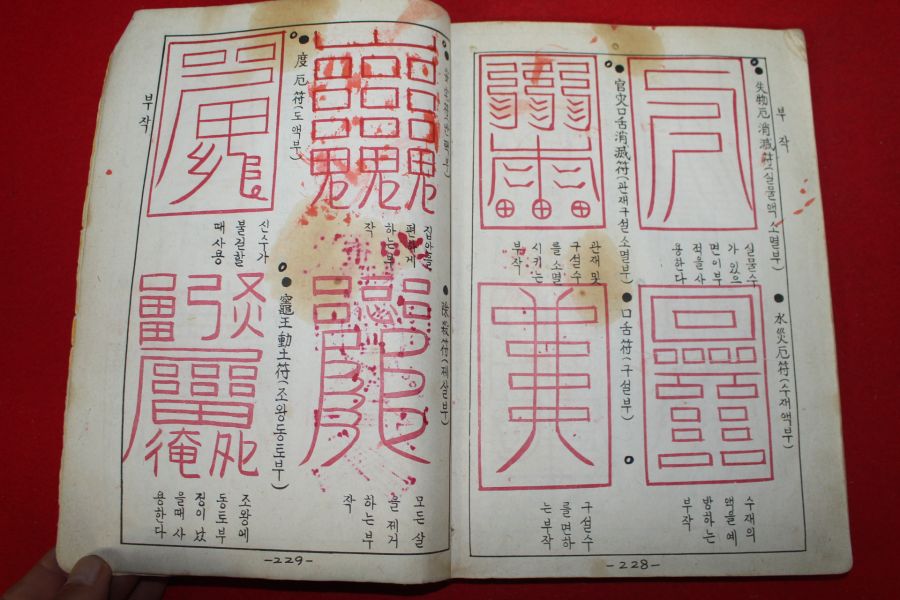 부 작
失物厄消滅符(실물액 소멸부)
실물수
가 있으
면 이 부
적을 사
용한다
官灾口舌消滅符(관재구설소멸부)
관재 및
구설수
를 소멸
시키는
부작
水災厄符(수재액부)
수재의
액을 예
방하는
부작
口舌符(구설부)
구설수
를 면하
는 부작
-228-
집안을
편하게
하는 부
작
度厄符(도액부)
신수가
불길할
때 사용
부 작
除殺符(제살부)
모든 살
을 제거
하는 부
작
竈王動土符(조왕동토부)
조왕에
동토부
정이 났
을때 사
용한다
-229-